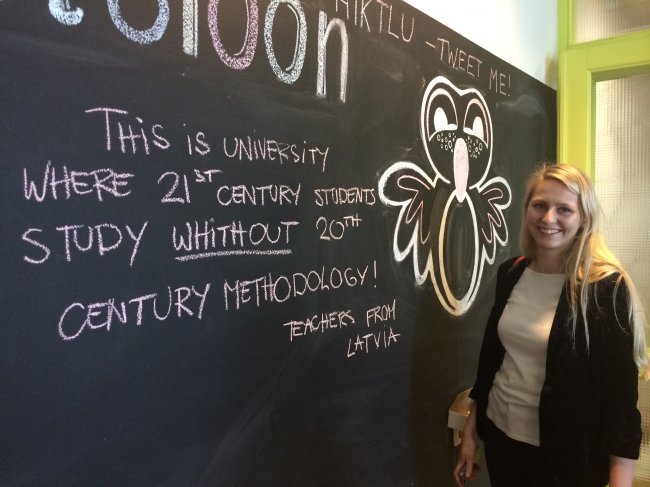 HIKTLU - TWEET ME!
THIS IS UNIVERSITY
WHERE 21ST CENTURY STUDENTS
STUDY WHITHOUT 20TH
CENTURY METHODOLOGY!
TEACHERS FROM
LATVIA